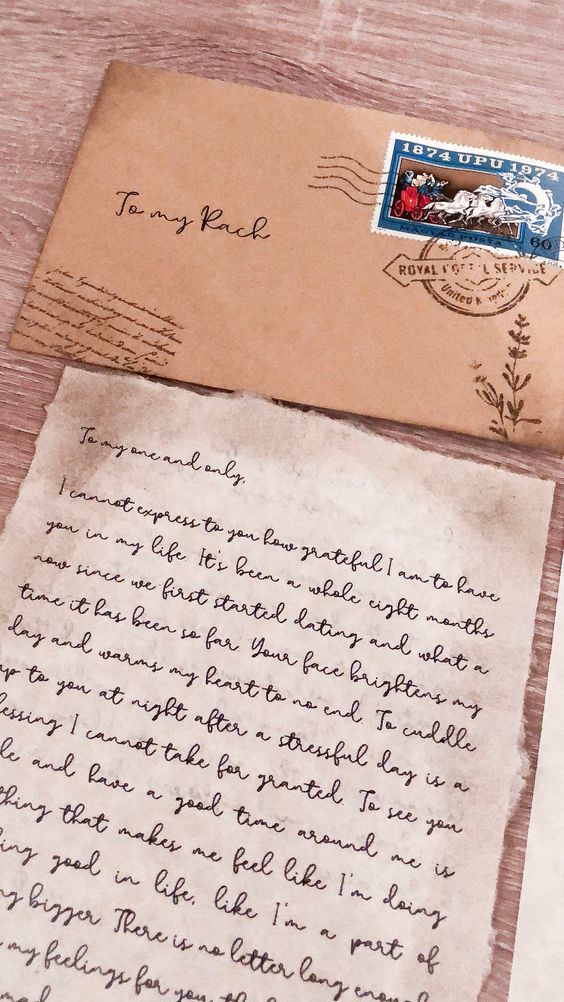 To my Rach
1874 UPU 1974
MAGYAR POSTA
60
ROYAL POSTAL SERVICE
United
To my one and only,
I cannot express to you how grateful I am to have
you in my life. It's been a whole eight months
now since we first started dating and what a
time it has been so far. Your face brightens my
day and warms my heart to no end. To cuddle
up to you at night after a stressful day is a
lessing I cannot take for granted. To see you
le and have a good time around me is
thing that makes me feel like I'm doing
ing good in life, like I'm a part of
ng bigger. There is no letter long enough
my feelings for you,